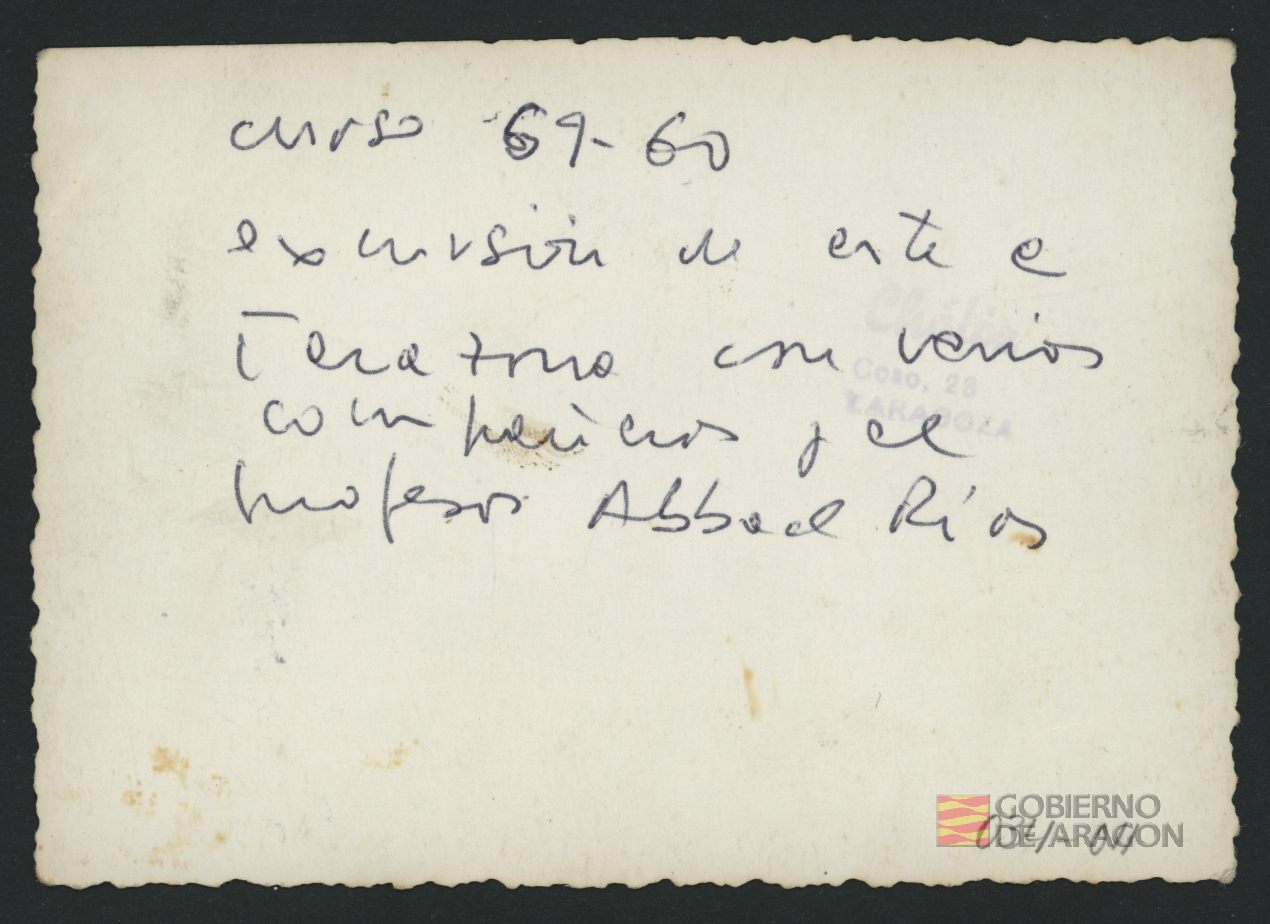 curso 69-60
excursión de arte a
Tarazona con varios
compañeros y el
profesor Abbad Ríos
Coso, 23
ZARAGOZA
GOBIERNO
DE ARAGON